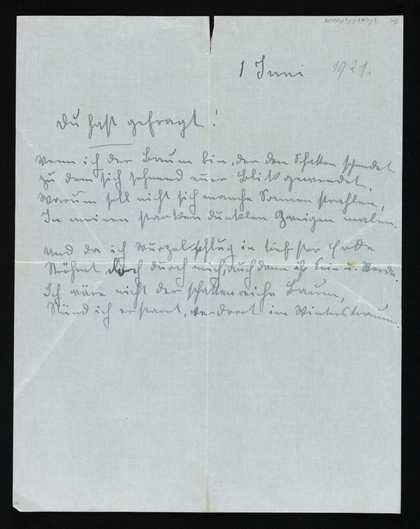 1 Juni 1921.
Du hast gefragt!
Wenn ich der Baum bin, der den Schatten spendet
zu dem sich sehnend euer Blick gewendet,
Warum soll nicht sich manche Sonnen strahlen,
In meinen starken dunklen Zweigen malen.
Und da ich Wurzel schlug in tiefster Erde
Strömt doch durch mich, auch dann ihr Sein u. Werde.
Ich wäre nicht der schattenreiche Baum,
Stünd ich erstarrt, verdorrt im Winterstraum.